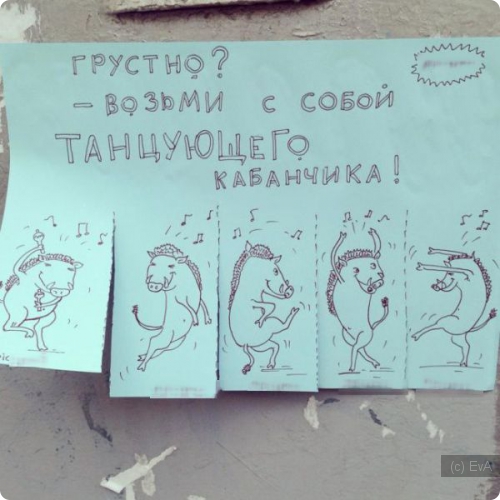 ГРУСТНО?
– ВОЗЬМИ С СОБОЙ
ТАНЦУЮЩЕГО
КАБАНЧИКА!
(c) EvA